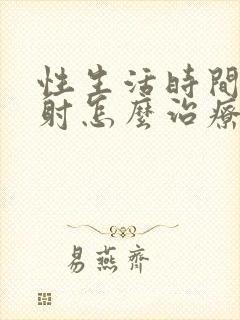 性生活時間
射怎麼治療
易燕齊